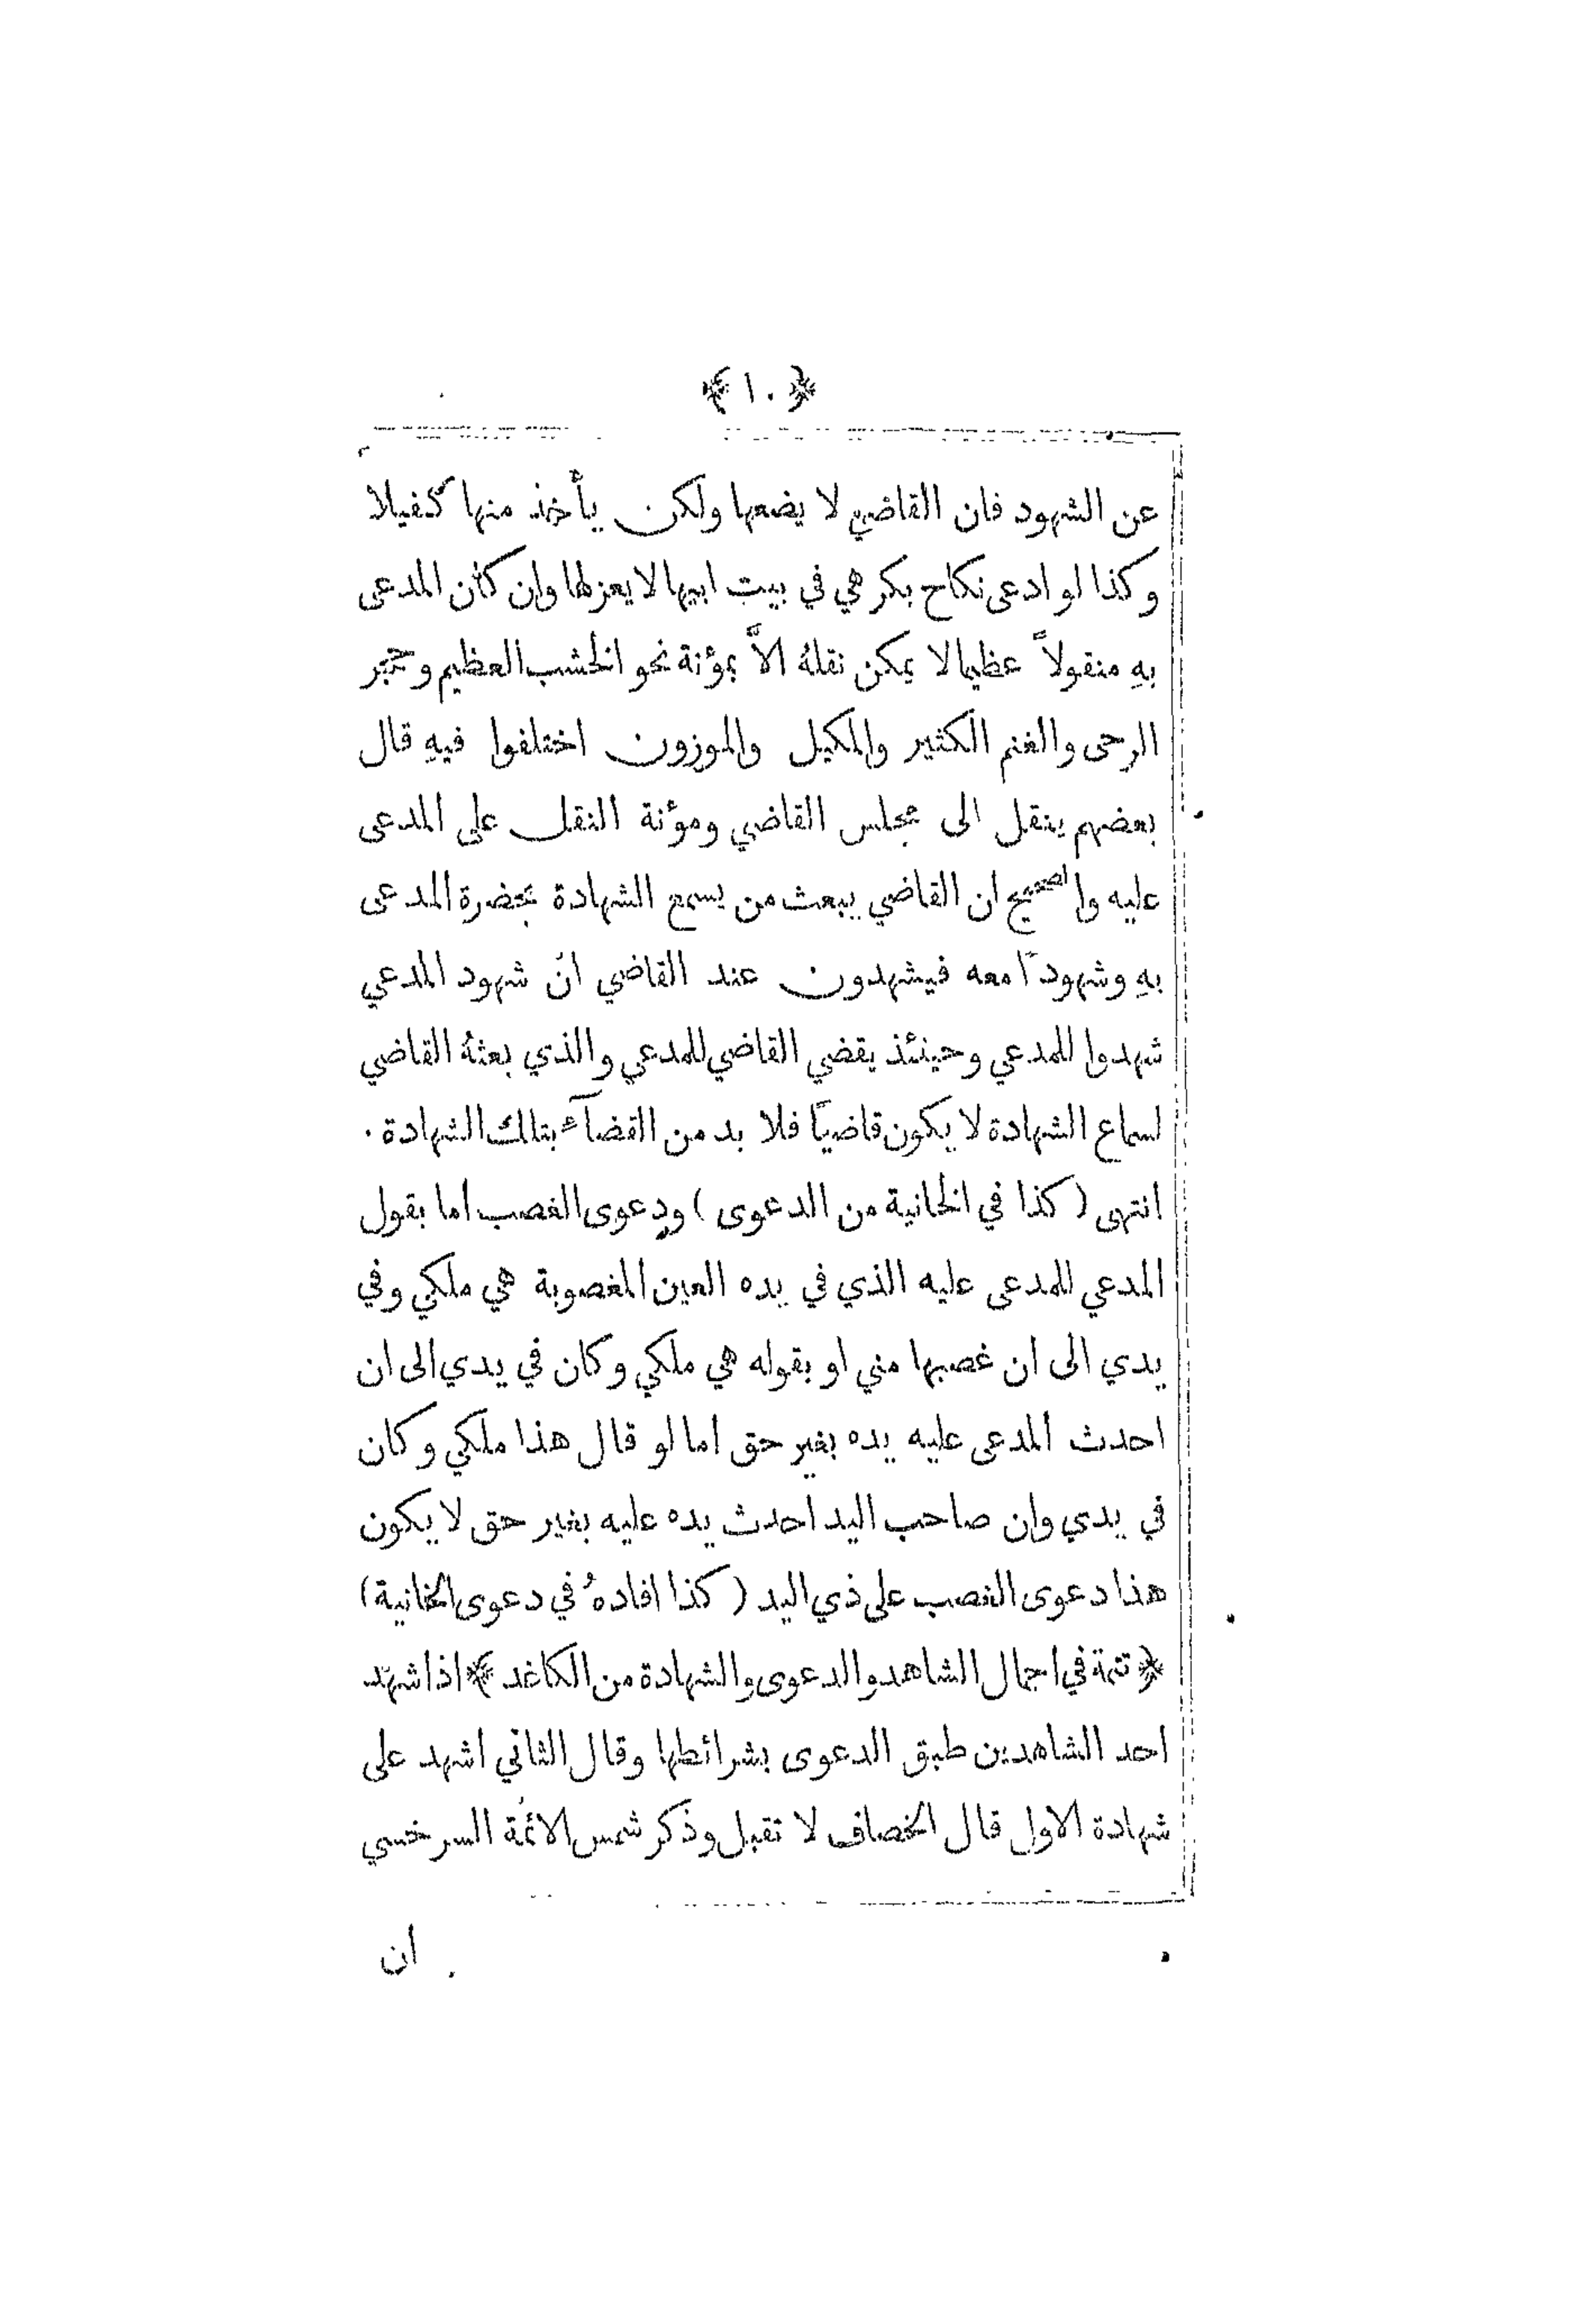 ﴿١٠﴾
عن الشهود فان القاضي لا يضعها ولكن يأخذ منها كفيلا
وكذا لو ادعى نكاح بكر هي في بيت ابيها لا يعزلها وان كان المدعى
بهِ منقولاً عظيما لا يمكن نقلهُ الاَّ بمؤنة نحو الخشب العظيم وحجر
الرحى والغنم الكثير والمكيل والموزون اختلفوا فيهِ قال
بعضهم ينقل الى مجلس القاضي ومؤنة النقل على المدعى
عليه والصحيح ان القاضي يبعث من يسمع الشهادة بحضرة المدعى
بهِ وشهوداً معه فيشهدون عند القاضي ان شهود المدعي
شهدوا للمدعي وحينئذ يقضي القاضي للمدعي والذي بعثهُ القاضي
لسماع الشهادة لا يكون قاضياً فلا بد من القضآء بتلك الشهادة .
انتهى ( كذا في الخانية من الدعوى ) ودعوى الغصب اما بقول
المدعي للمدعى عليه الذي في يده العين المغصوبة هي ملكي وفي
يدي الى ان غصبها مني او بقوله هي ملكي وكان في يدي الى ان
احدث المدعى عليه يده بغير حق اما لو قال هذا ملكي وكان
في يدي وان صاحب اليد احدث يده عليه بغير حق لا يكون
هذا دعوى الغصب على ذي اليد ( كذا افادهُ في دعوى الخانية )
﴿ تتمة في اجمال الشاهد والدعوى والشهادة من الكاغد ﴾ اذا شهد
احد الشاهدين طبق الدعوى بشرائطها وقال الثاني اشهد على
شهادة الاول قال الخصاف لا تقبل وذكر شمس الائمة السرخسي
ان